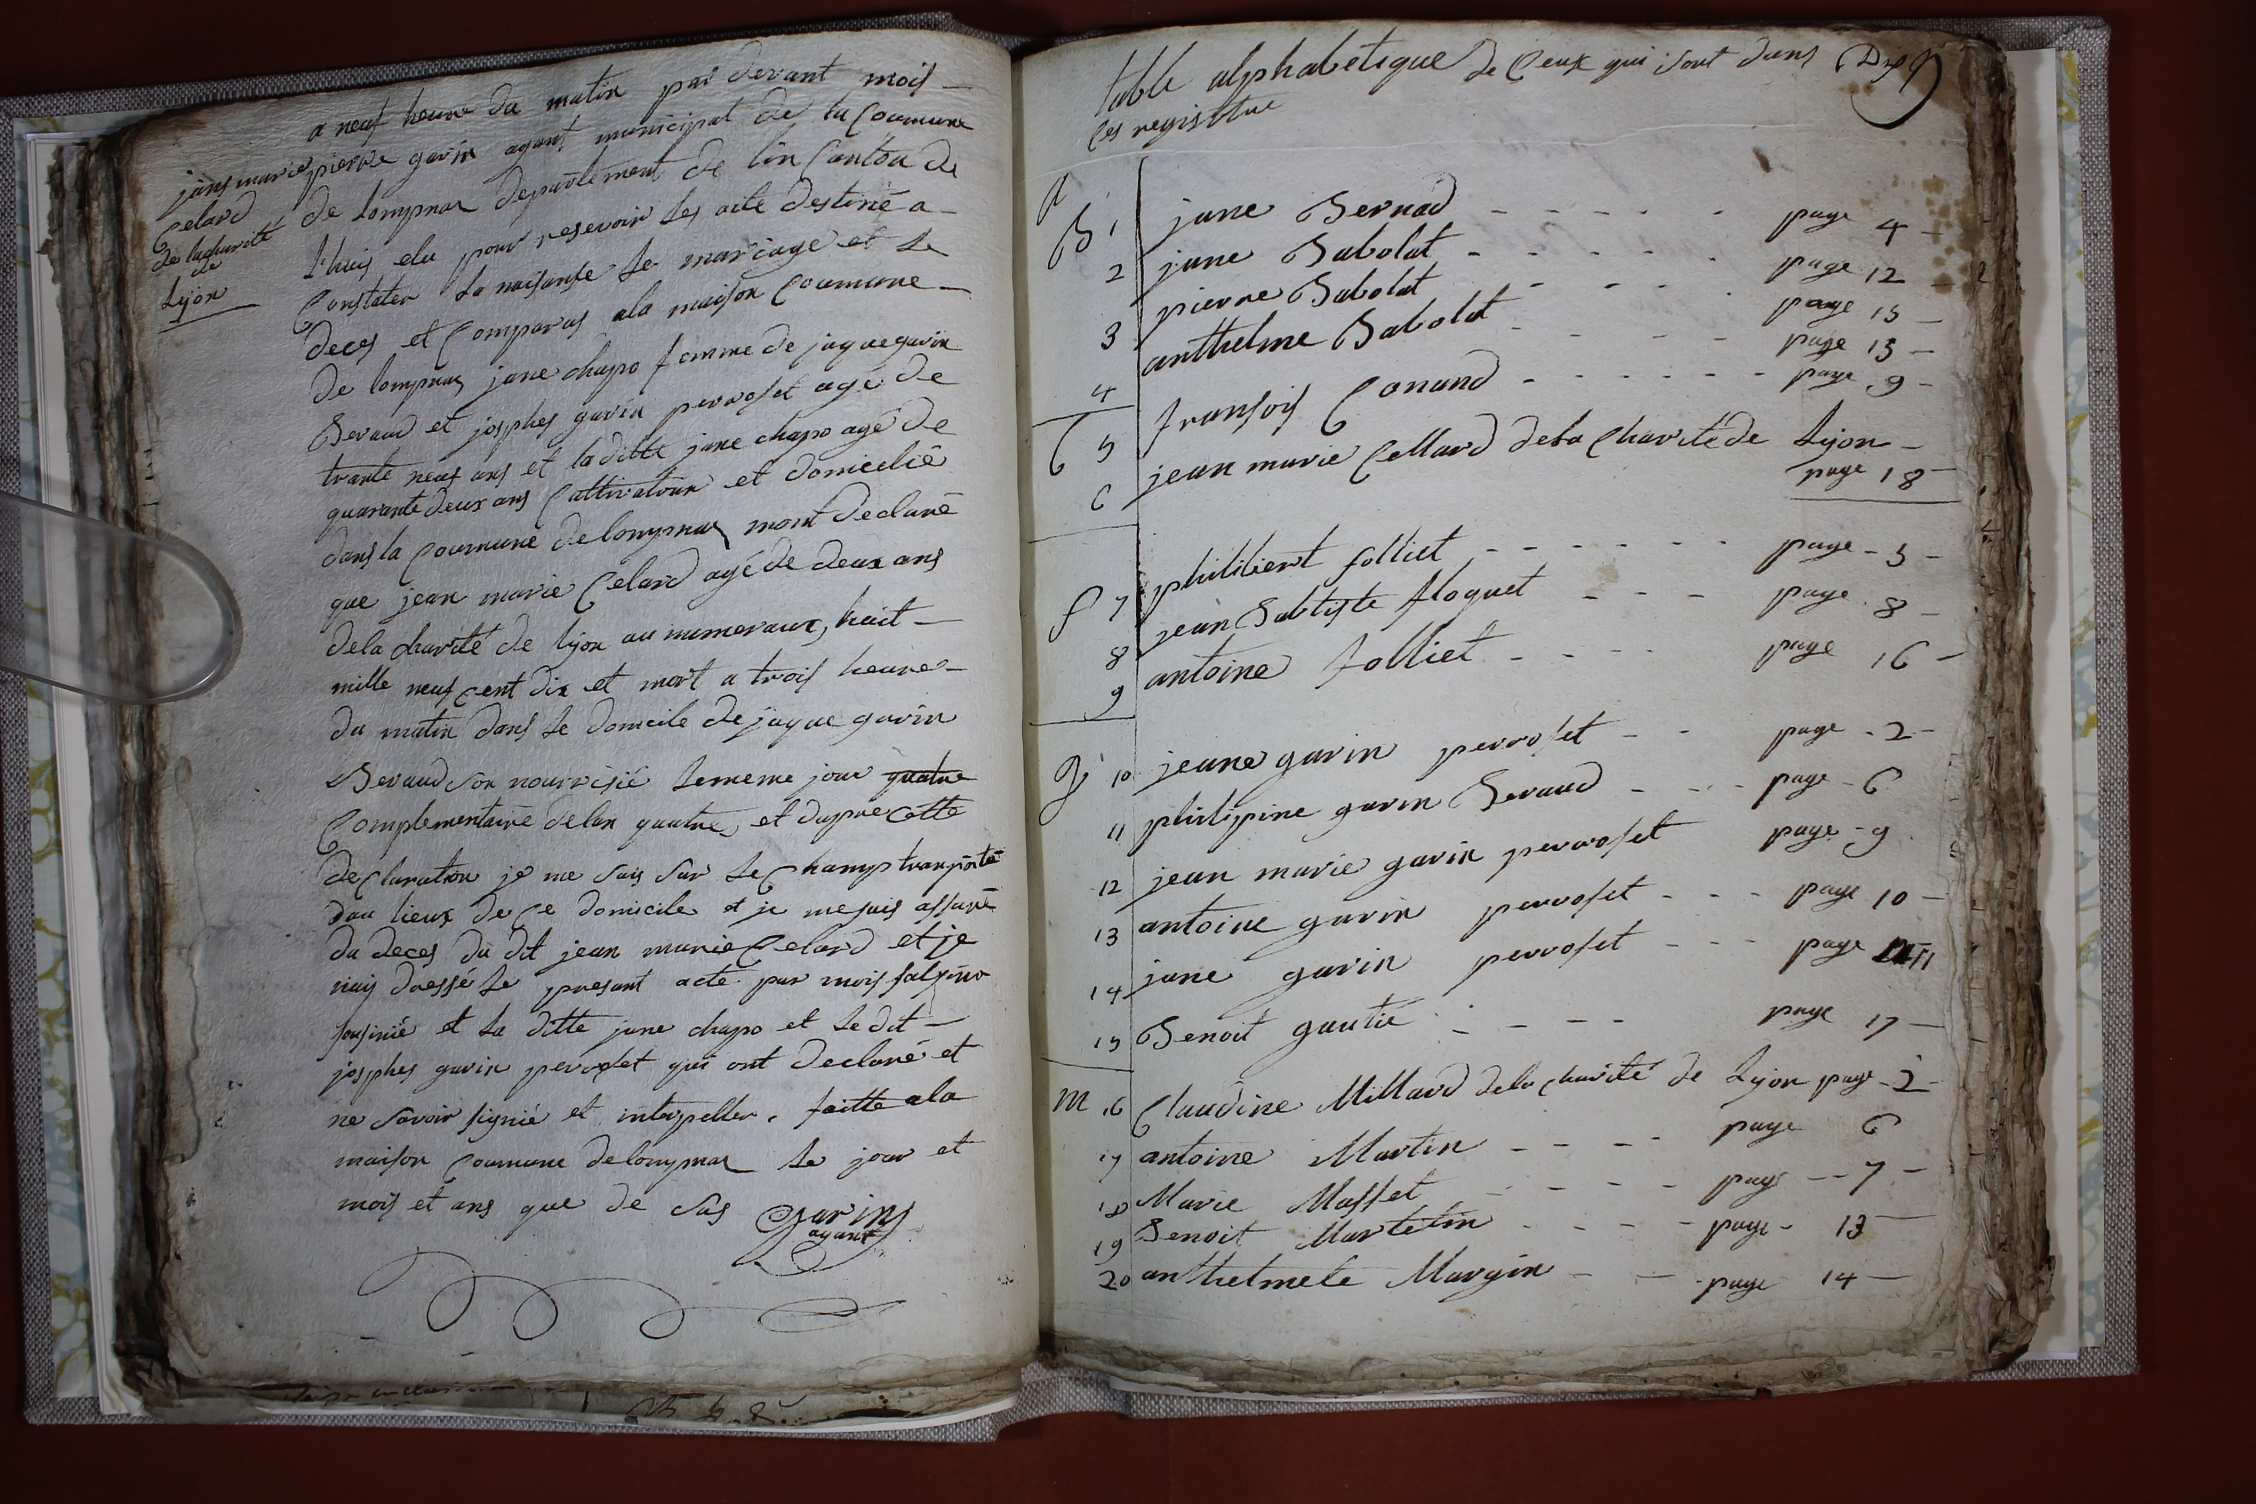 a neuf heure du matin par devant mois
jans marie
celard
de lacharité
de
Lyon
pierre gavin agant municipal de la coumune
de Lompnas departement de lin canton de
Lhuis elu pour resevoir les acte destiné a
constater la naisanse le mariage et le
deces et comparus ala maison coumune
de lompnas jane chapo femme de jaque gavin
Beraud et josphes gavin perroset agé de
trante neuf ans et laditte jane chapo agé de
quarante deux ans cultivatour et domicilié
dans la coumune de lompnas mont declaré
que jean marie celard agé de deux ans
dela charité de lyon au numeraux, huit
mille neuf cent dix et mort a trois heure
du matin dans le domicile de jaque gavin
Beraud son nourrisié lememe jour quatre
complementaire delan quatre et dapre cette
declaration je me suis sur le champ tranporté
dau lieux de ce domicile et je mesuis assuré
du deces du dit jean marie celard et je
nais dressé le presant acte par mois
sousinié et la ditte jane chapo et ledit
josphes gavin perroset qui ont declaré et
ne savoir signié et interpeller. faitte ala
maison coumune delompnas le jour et
mois et ans que de sus
Gavin
agant
table alphabetique de ceux qui sont dans
ces registre
A
B 1 jane Bernad page 4
2 jane Babolat page 12
3 pierre Babolat page 15
4 anthelme Babolat page 15
C 5 fransois Conand page 9
6 jean marie Cellard dela charité de Lyon
page 18
f 7 philibert folliet page 5
8 jean Babtiste floquet page 8
9 antoine folliet page 16
g 10 jeane gavin perroset page 2
11 philipine gavin Beraud page 6
12 jean marie gavin perroset page 9
13 antoine gavin perroset page 10
14 jane gavin perroset page 11
15 Benoit gautié page 17
M 16 Claudine Millard dela charité de Lyon page 2
17 antoine Martin page 6
18 Marie Masset page 7
19 Benoit Martelin page 13
20 anthelmete Margin page 14